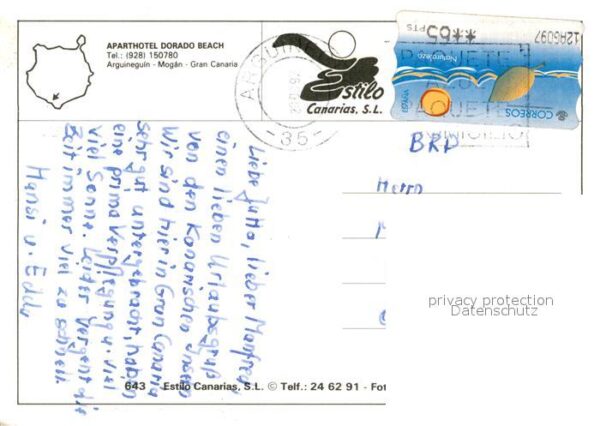 APARTHOTEL DORADO BEACH
Tel.: (928) 150780
Arguineguín - Mogán - Gran Canaria
Estilo
Canarias, S.L.
ARGUINEGUIN
-35-
**65
PTS
12A6097
Naturaleza
CORREOS
PAQUETE
BRD
Herrn
Liebe Jutta, lieber Manfred,
einen lieben Urlaubsgruß
von den Kanarischen Inseln
Wir sind hier in Gran Canaria
sehr gut untergebracht, haben
eine prima Verpflegung u. viel
viel Sonne. Leider vergeht die
Zeit immer viel zu schnell.
Hansi u. Eddi
643 Estilo Canarias, S.L. © Telf.: 24 62 91 - Fot
privacy protection
Datenschutz